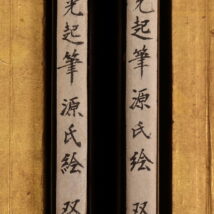 光起筆 源氏絵 双
光起筆 源氏絵 双